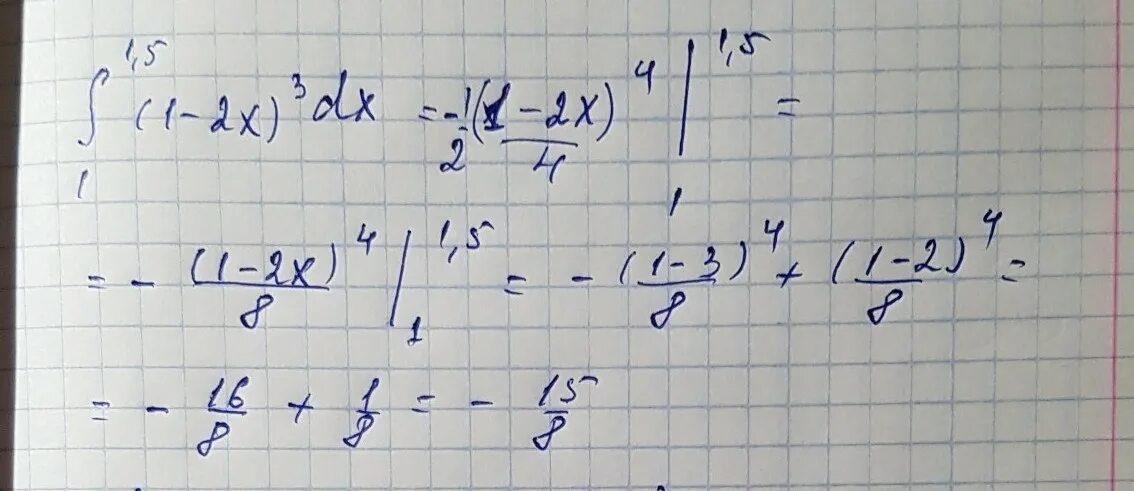 ∫₁^1,5 (1-2x)³dx = -1/2 (1-2x)⁴/4 |₁^1,5 =
= - (1-2x)⁴/8 |₁^1,5 = - (1-3)⁴/8 + (1-2)⁴/8 =
= - 16/8 + 1/8 = - 15/8